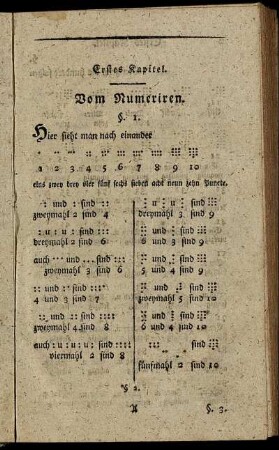 Erstes Kapitel.
Vom Numeriren.
§. 1.
Hier sieht man nach einander
1 2 3 4 5 6 7 8 9 10
eins zwey drey vier fünf sechs sieben acht neun zehn Puncte.
: und : sind ::
zweymahl 2 sind 4
: u : u : sind :::
dreymahl 2 sind 6
auch ... und ... sind :::
zweymahl 3 sind 6
:: und ... sind
4 und 3 sind 7
:: und :: sind ::::
zweymahl 4 sind 8
auch : u : u : u : sind ::::
viermahl 2 sind 8
u u sind
dreymahl 3 sind 9
und sind
6 und 3 sind 9
und sind
5 und 4 sind 9
und sind
zweymahl 5 sind 10
und sind
6 und 4 sind 10
sind
fünfmahl 2 sind 10
§ 2.
A
§. 3.